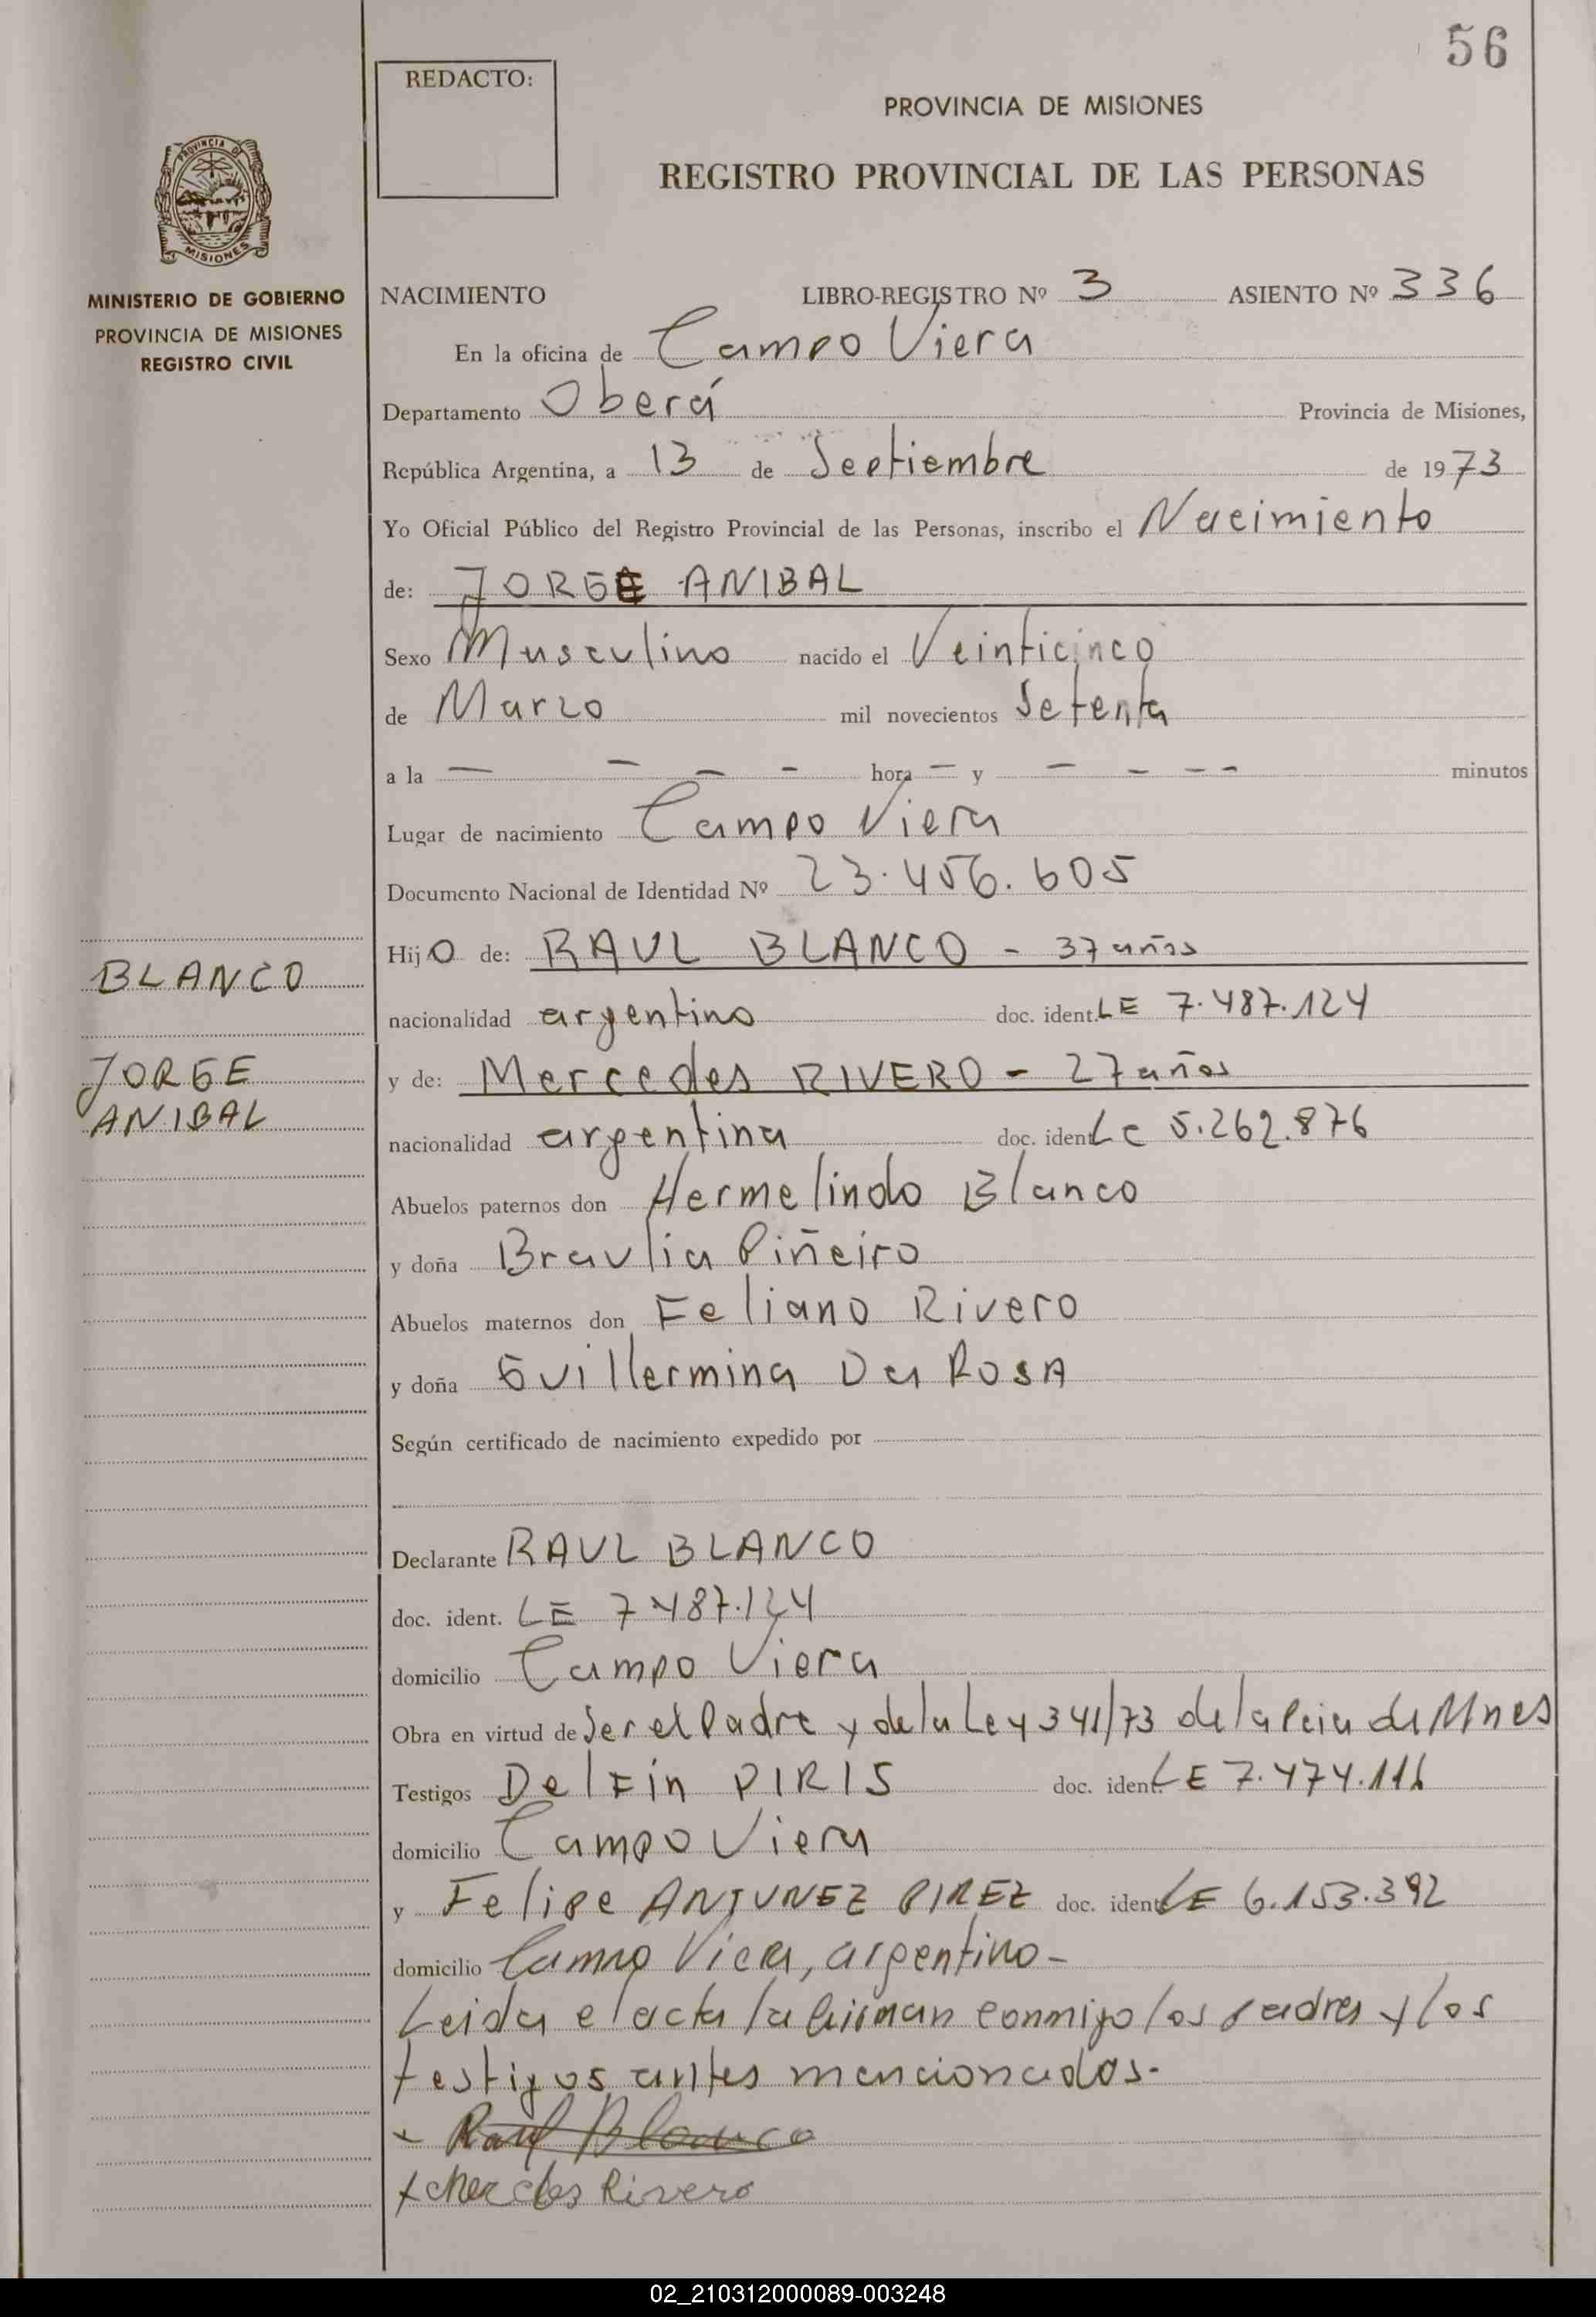 56
REDACTO:
PROVINCIA DE MISIONES
REGISTRO PROVINCIAL DE LAS PERSONAS
PROVINCIA DE
MISIONES
MINISTERIO DE GOBIERNO
PROVINCIA DE MISIONES
REGISTRO CIVIL
NACIMIENTO LIBRO-REGISTRO Nº 3 ASIENTO Nº 336
En la oficina de Campo Viera
Departamento Oberá Provincia de Misiones,
República Argentina, a 13 de Septiembre de 1973
Yo Oficial Público del Registro Provincial de las Personas, inscribo el Nacimiento
de: JORGE ANIBAL
Sexo Masculino nacido el Veinticinco
de Marzo mil novecientos Setenta
a la — — — — hora — y — — — — minutos
Lugar de nacimiento Campo Viera
Documento Nacional de Identidad Nº 23.456.605
Hijo de: RAUL BLANCO - 37 años
BLANCO
nacionalidad argentino doc. ident. LE 7.487.124
JORGE
ANIBAL
y de: Mercedes RIVERO - 27 años
nacionalidad argentina doc. ident. LC 5.262.876
Abuelos paternos don Hermelindo Blanco
y doña Braulia Piñeiro
Abuelos maternos don Feliano Rivero
y doña Guillermina Da ROSA
Según certificado de nacimiento expedido por
Declarante RAUL BLANCO
doc. ident. LE 7.487.124
domicilio Campo Viera
Obra en virtud de Ser el Padre y de la Ley 341/73 de la Pcia de Mnes
Testigos Delfin PIRIS doc. ident. LE 7.474.116
domicilio Campo Viera
y Felipe ANTUNEZ PIREZ doc. ident. LE 6.153.392
domicilio Campo Viera, argentino-
Leida el acta la firman conmigo los padres y los
testigos antes mencionados.-
x Raul Blanco
x Mercedes Rivero
02_210312000089-003248